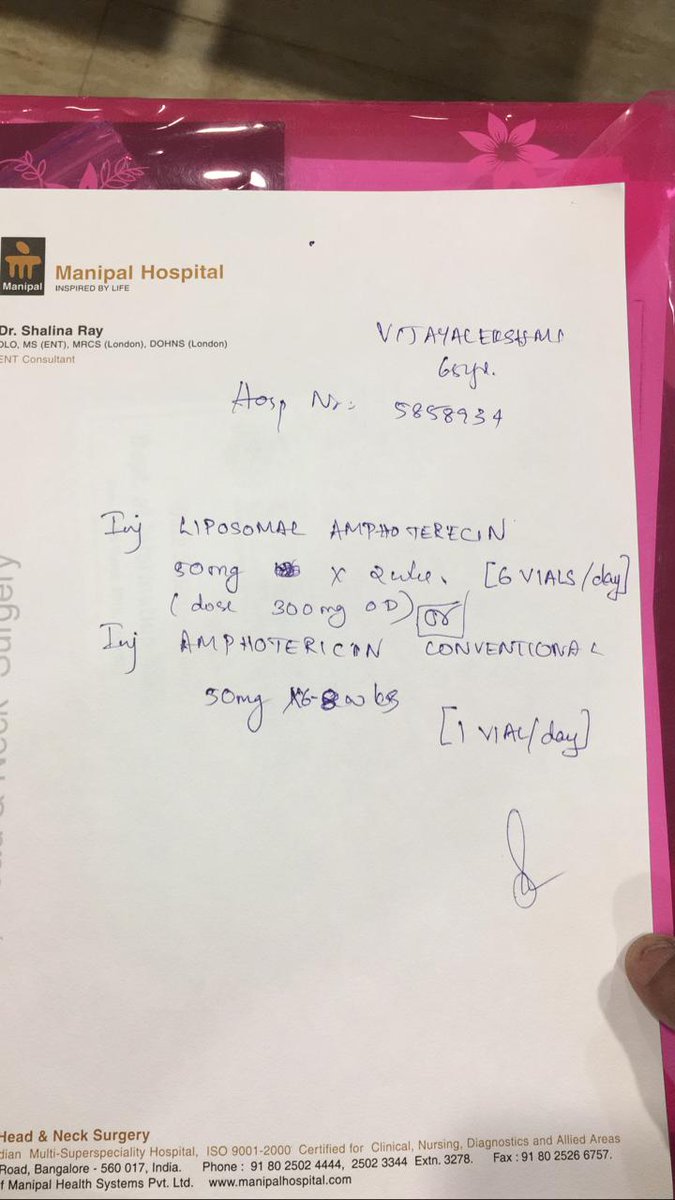 Manipal
Manipal Hospital
INSPIRED BY LIFE
Dr. Shalina Ray
DLO, MS (ENT), MRCS (London), DOHNS (London)
ENT Consultant
65yr.
Hosp Nr: 5858934
Inj LIPOSOMAL AMPHOTERECIN
50mg X [6 VIALS/day]
(dose 300mg OD) or
Inj AMPHOTERICIN CONVENTIONAL
50mg
[1 VIAL/day]
Neck Surgery
Head & Neck Surgery
dian Multi-Superspeciality Hospital, ISO 9001-2000 Certified for Clinical, Nursing, Diagnostics and Allied Areas
Road, Bangalore - 560 017, India. Phone : 91 80 2502 4444, 2502 3344 Extn. 3278. Fax : 91 80 2526 6757.
f Manipal Health Systems Pvt. Ltd. www.manipalhospital.com